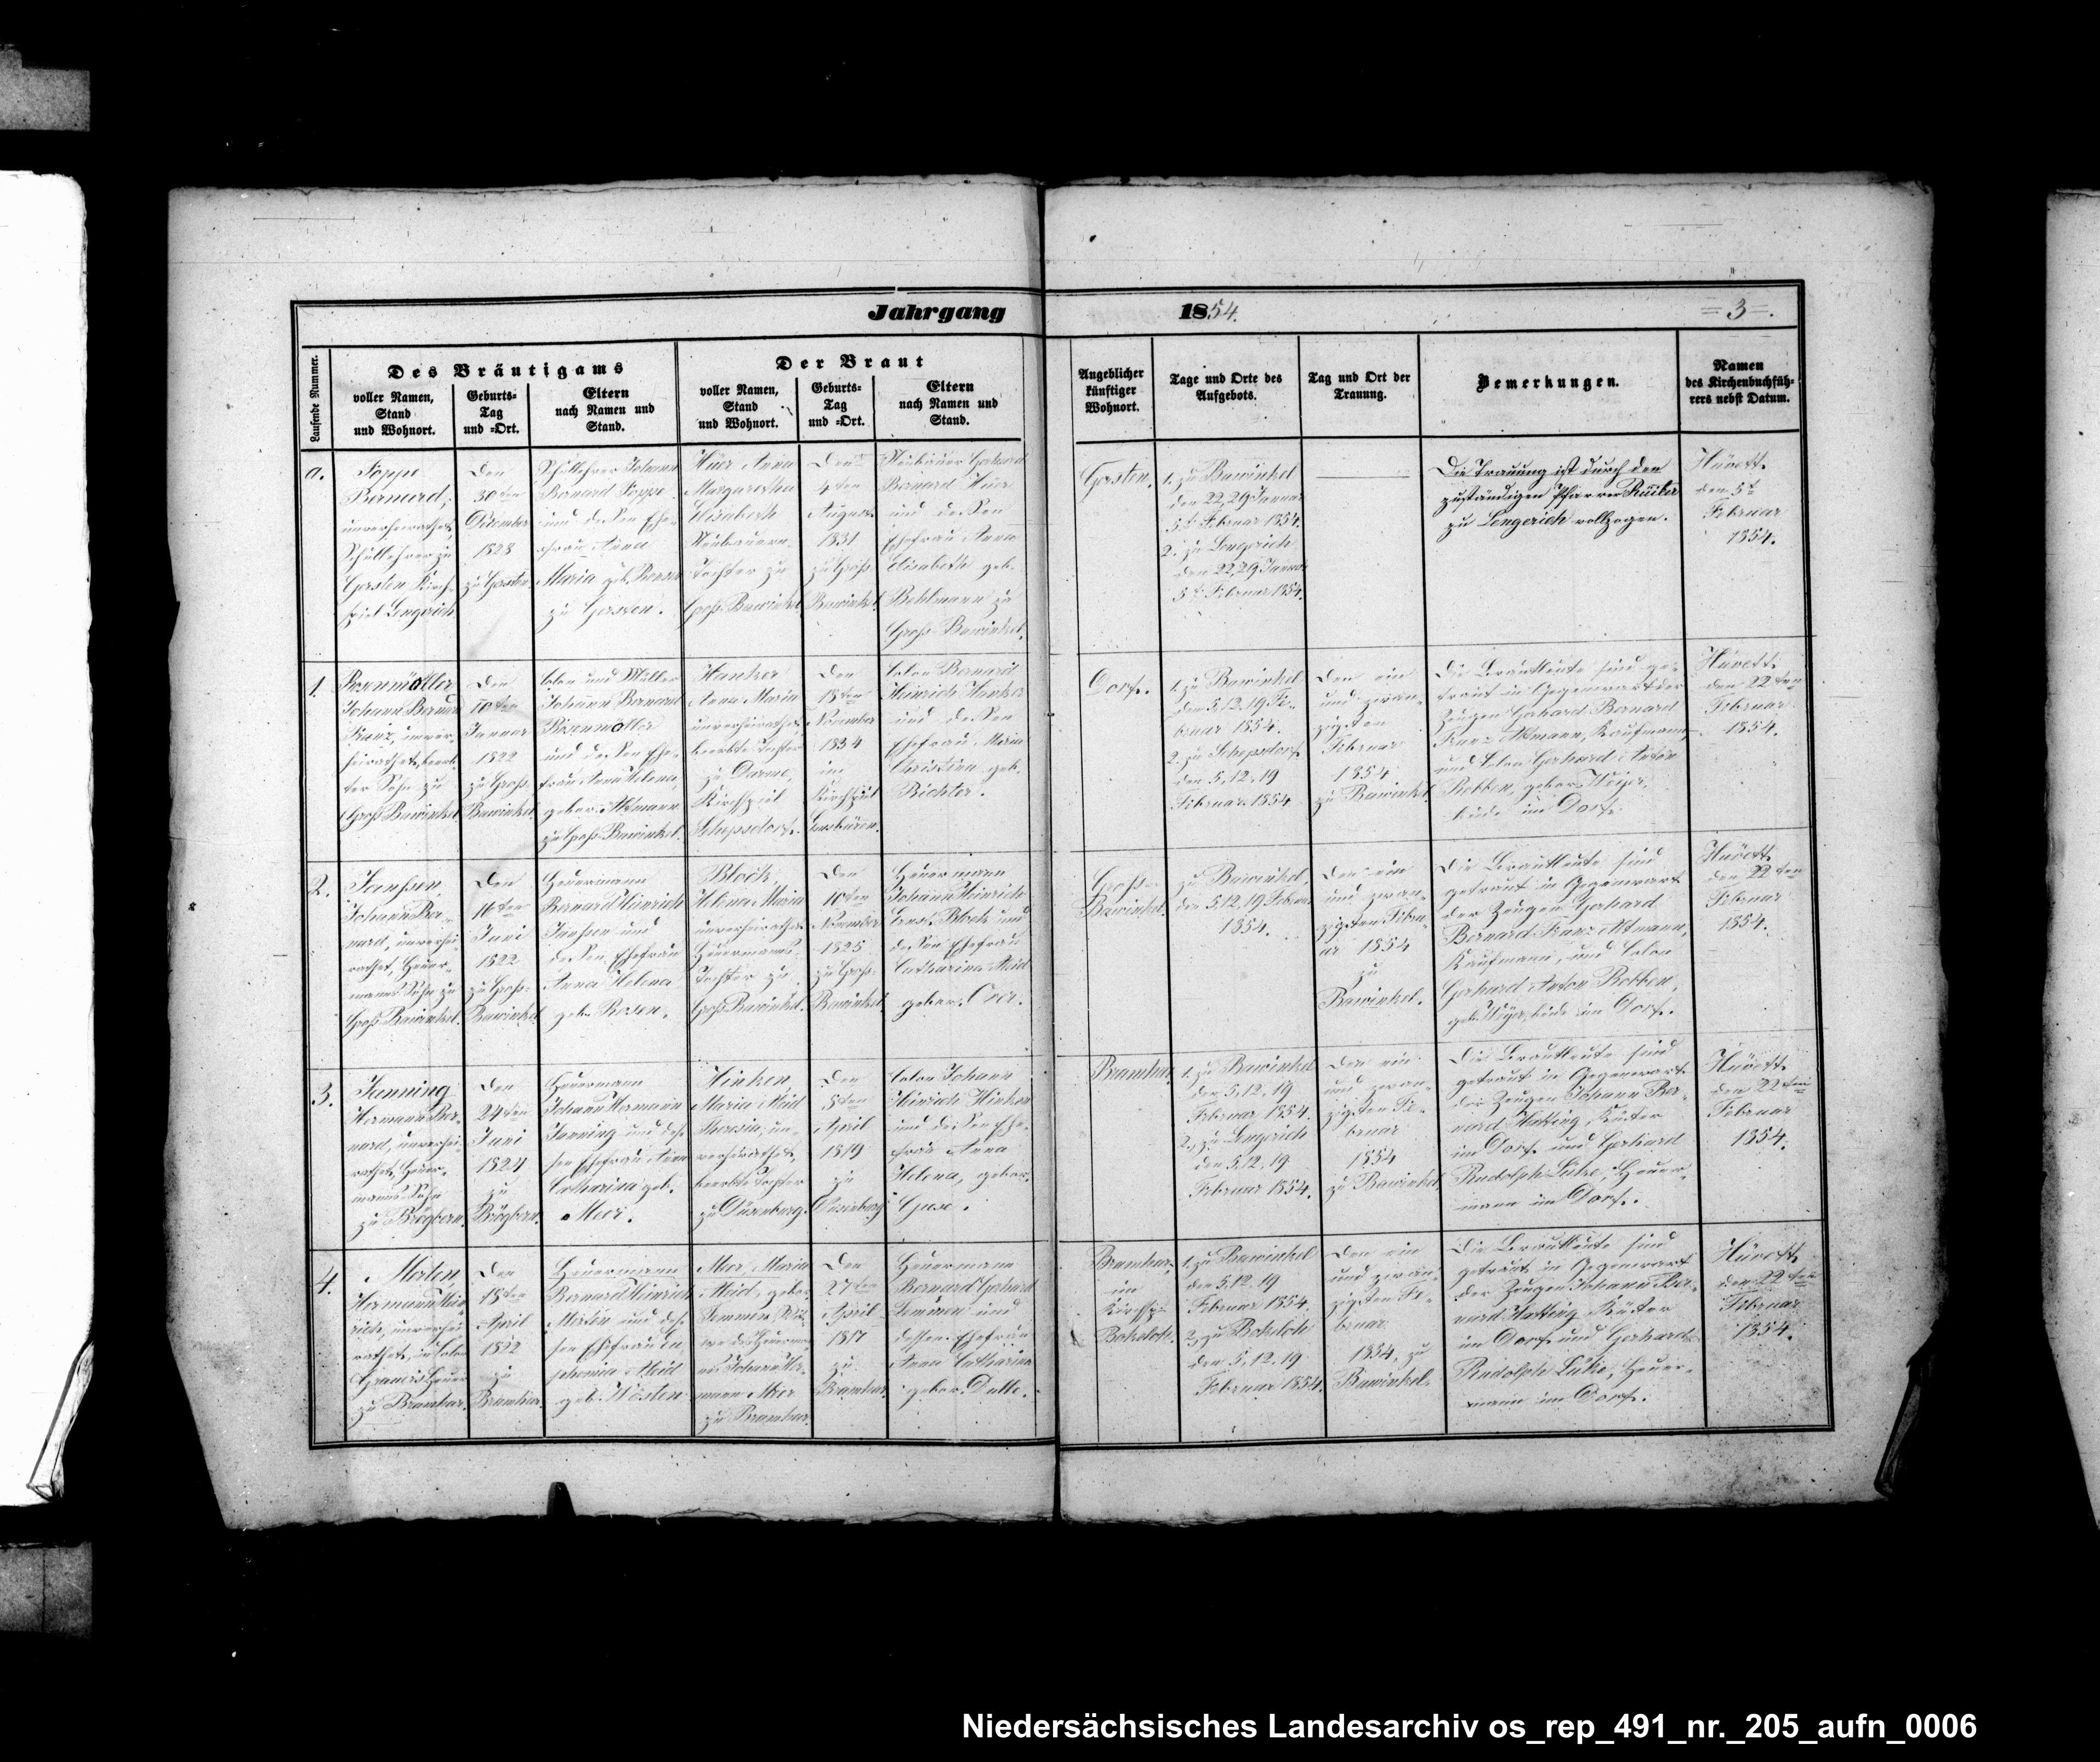 Jahrgang 1854. =3=.
Laufende Nummer.
Des Bräutigams
voller Namen,
Stand
und Wohnort.
Geburts-
Tag
und -Ort.
Eltern
nach Namen und
Stand.
Der Braut
voller Namen,
Stand
und Wohnort.
Geburts-
Tag
und -Ort.
Eltern
nach Namen und
Stand.
Angeblicher
künftiger
Wohnort.
Tage und Orte des
Aufgebots.
Tag und Ort der
Trauung.
Bemerkungen.
Namen
des Kirchenbuchfüh-
rers nebst Datum.
a.
Foppe
Bernard,
unverheirathet,
Schullehrer zu
Gersten Kirch-
spiel Lengerich
den
30ten
December
1828
zu Gersten.
Schullehrer Johann
Bernard Foppe
und dessen Ehe-
frau Anna
Maria geb.
zu Gersten.
Hüer Anna
Margaretha
Elisabeth
Neubauern-
Tochter zu
Groß-Bawinkel
den
4ten
August
1831
zu Groß-
Bawinkel.
Neubauer Gerhard
Bernard Hüer
und dessen
Ehefrau Anna
Elisabeth geb.
Behlmann zu
Groß-Bawinkel.
Gersten.
1. zu Bawinkel
den 22, 29 Januar
5t Februar 1854.
2. zu Lengerich
den 22, 29 Januar
5t Februar 1854.
Die Trauung ist durch den
zuständigen Pfarrer
zu Lengerich vollzogen.
Hüvett.
den 5t
Februar
1854.
1.
Rosenmöller
Johann Bernard
Franz, unver-
heirathet, beerb-
ter Sohn zu
Groß Bawinkel
den
10ten
Januar
1822
zu Groß-
Bawinkel.
Colon und Müller
Johann Bernard
Rosenmöller
und dessen Ehe-
frau Anna Helena,
gebor. Altmann
zu Groß-Bawinkel.
Hanker
Anna Maria
unverheirathet,
beerbte Tochter
zu Darme,
Kirchspiel
Schepsdorf.
den
18ten
November
1834
im
Kirchspiel
Emsbüren.
Colon Bernard
Heinrich Hanker
und dessen
Ehefrau Maria
Christina geb.
Richter.
Dorf.
1. zu Bawinkel
den 5, 12, 19 Fe-
bruar 1854.
2. zu Schepsdorf
den 5, 12, 19
Februar 1854.
den ein
und zwan-
zigsten
Februar
1854
zu Bawinkel.
Die Brautleute sind ge-
traut in Gegenwart der
Zeugen Gerhard Bernard
Franz Altmann, Kaufmann,
und Colon Gerhard Anton
Robben, gebor. Meyer,
beide im Dorf.
Hüvett.
den 22ten
Februar
1854.
2.
Janhsen,
Johann Ber-
nard, unverhei-
rathet, Heuer-
manns Sohn zu
Groß-Bawinkel.
den
16ten
Juni
1822
zu Groß-
Bawinkel
Heuermann
Bernard Heinrich
Janhsen und
dessen Ehefrau
Anna Helena
geb. Rosen.
Block,
Helena Maria
unverheirathet
Heuermanns-
Tochter zu
Groß Bawinkel.
den
10ten
November
1825
zu Groß-
Bawinkel.
Heuermann
Johann Heinrich
Ernst Block und
dessen Ehefrau
Catharina Aleid
gebor.
Groß-
Bawinkel.
zu Bawinkel,
den 5, 12, 19 Februar
1854.
den ein
und zwan-
zigsten Febru-
ar 1854
zu
Bawinkel.
Die Brautleute sind
getraut in Gegenwart
der Zeugen Gerhard
Bernard Franz Altmann,
Kaufmann, und Colon
Gerhard Anton Robben,
geb. Meyer, beide im Dorf.
Hüvett.
den 22ten
Februar
1854.
3.
Janning
Hermann Ber-
nard, unverhei-
rathet, Heuer-
manns Sohn
zu Brögbern.
den
24ten
Juni
1824
zu
Brögbern.
Heuermann
Johann Hermann
Janning und des-
sen Ehefrau Anna
Catharina geb.
Meer.
Hinken,
Maria Aleid
Theresia, un-
verheirathet,
beerbte Tochter
zu Düsenburg.
den
5ten
April
1819
zu
Düsenburg
Colon Johann
Heinrich Hinken
und dessen Ehe-
frau Anna
Helena, gebor.
Giese.
Bramhar.
1. zu Bawinkel
den 5, 12, 19
Februar 1854.
2. zu Lengerich
den 5, 12, 19
Februar 1854.
den ein
und zwan-
zigsten Fe-
bruar
1854
zu Bawinkel.
Die Brautleute sind
getraut in Gegenwart
der Zeugen Johann Ber-
nard Hatting, Küster
im Dorf und Gerhard
Rudolph Lüke, Heuer-
mann im Dorf.
Hüvett.
den 22ten
Februar
1854.
4.
Merten,
Hermann Hein-
rich, unverhei-
rathet, in Colon
Heuer
zu Bramhar.
den
18ten
April
1822
zu
Bramhar.
Heuermann
Bernard Heinrich
Merten und des-
sen Ehefrau Eu-
phemia Aleid
geb. Wösten
Meer, Maria
Aleid, gebor.
Temmen, Witt-
we des Heuerman-
nes Johann Her-
mann Meer
zu Bramhar.
den
27ten
April
1817
zu
Bramhar.
Heuermann
Bernard Gerhard
Temmen und
dessen Ehefrau
Anna Catharina
gebor. Dulle.
Bramhar,
im
Kirchsp.
Bokeloh.
1. zu Bawinkel
den 5, 12, 19
Februar 1854.
2. zu Bokeloh
den 5, 12, 19
Februar 1854.
den ein
und zwan-
zigsten Fe-
bruar
1854, zu
Bawinkel.
Die Brautleute sind
getraut in Gegenwart
der Zeugen Johann Ber-
nard Hatting, Küster
im Dorf und Gerhard
Rudolph Lüke, Heuer-
mann im Dorf.
Hüvett.
den 22ten
Februar
1854.
Niedersächsisches Landesarchiv os_rep_491_nr._205_aufn_0006